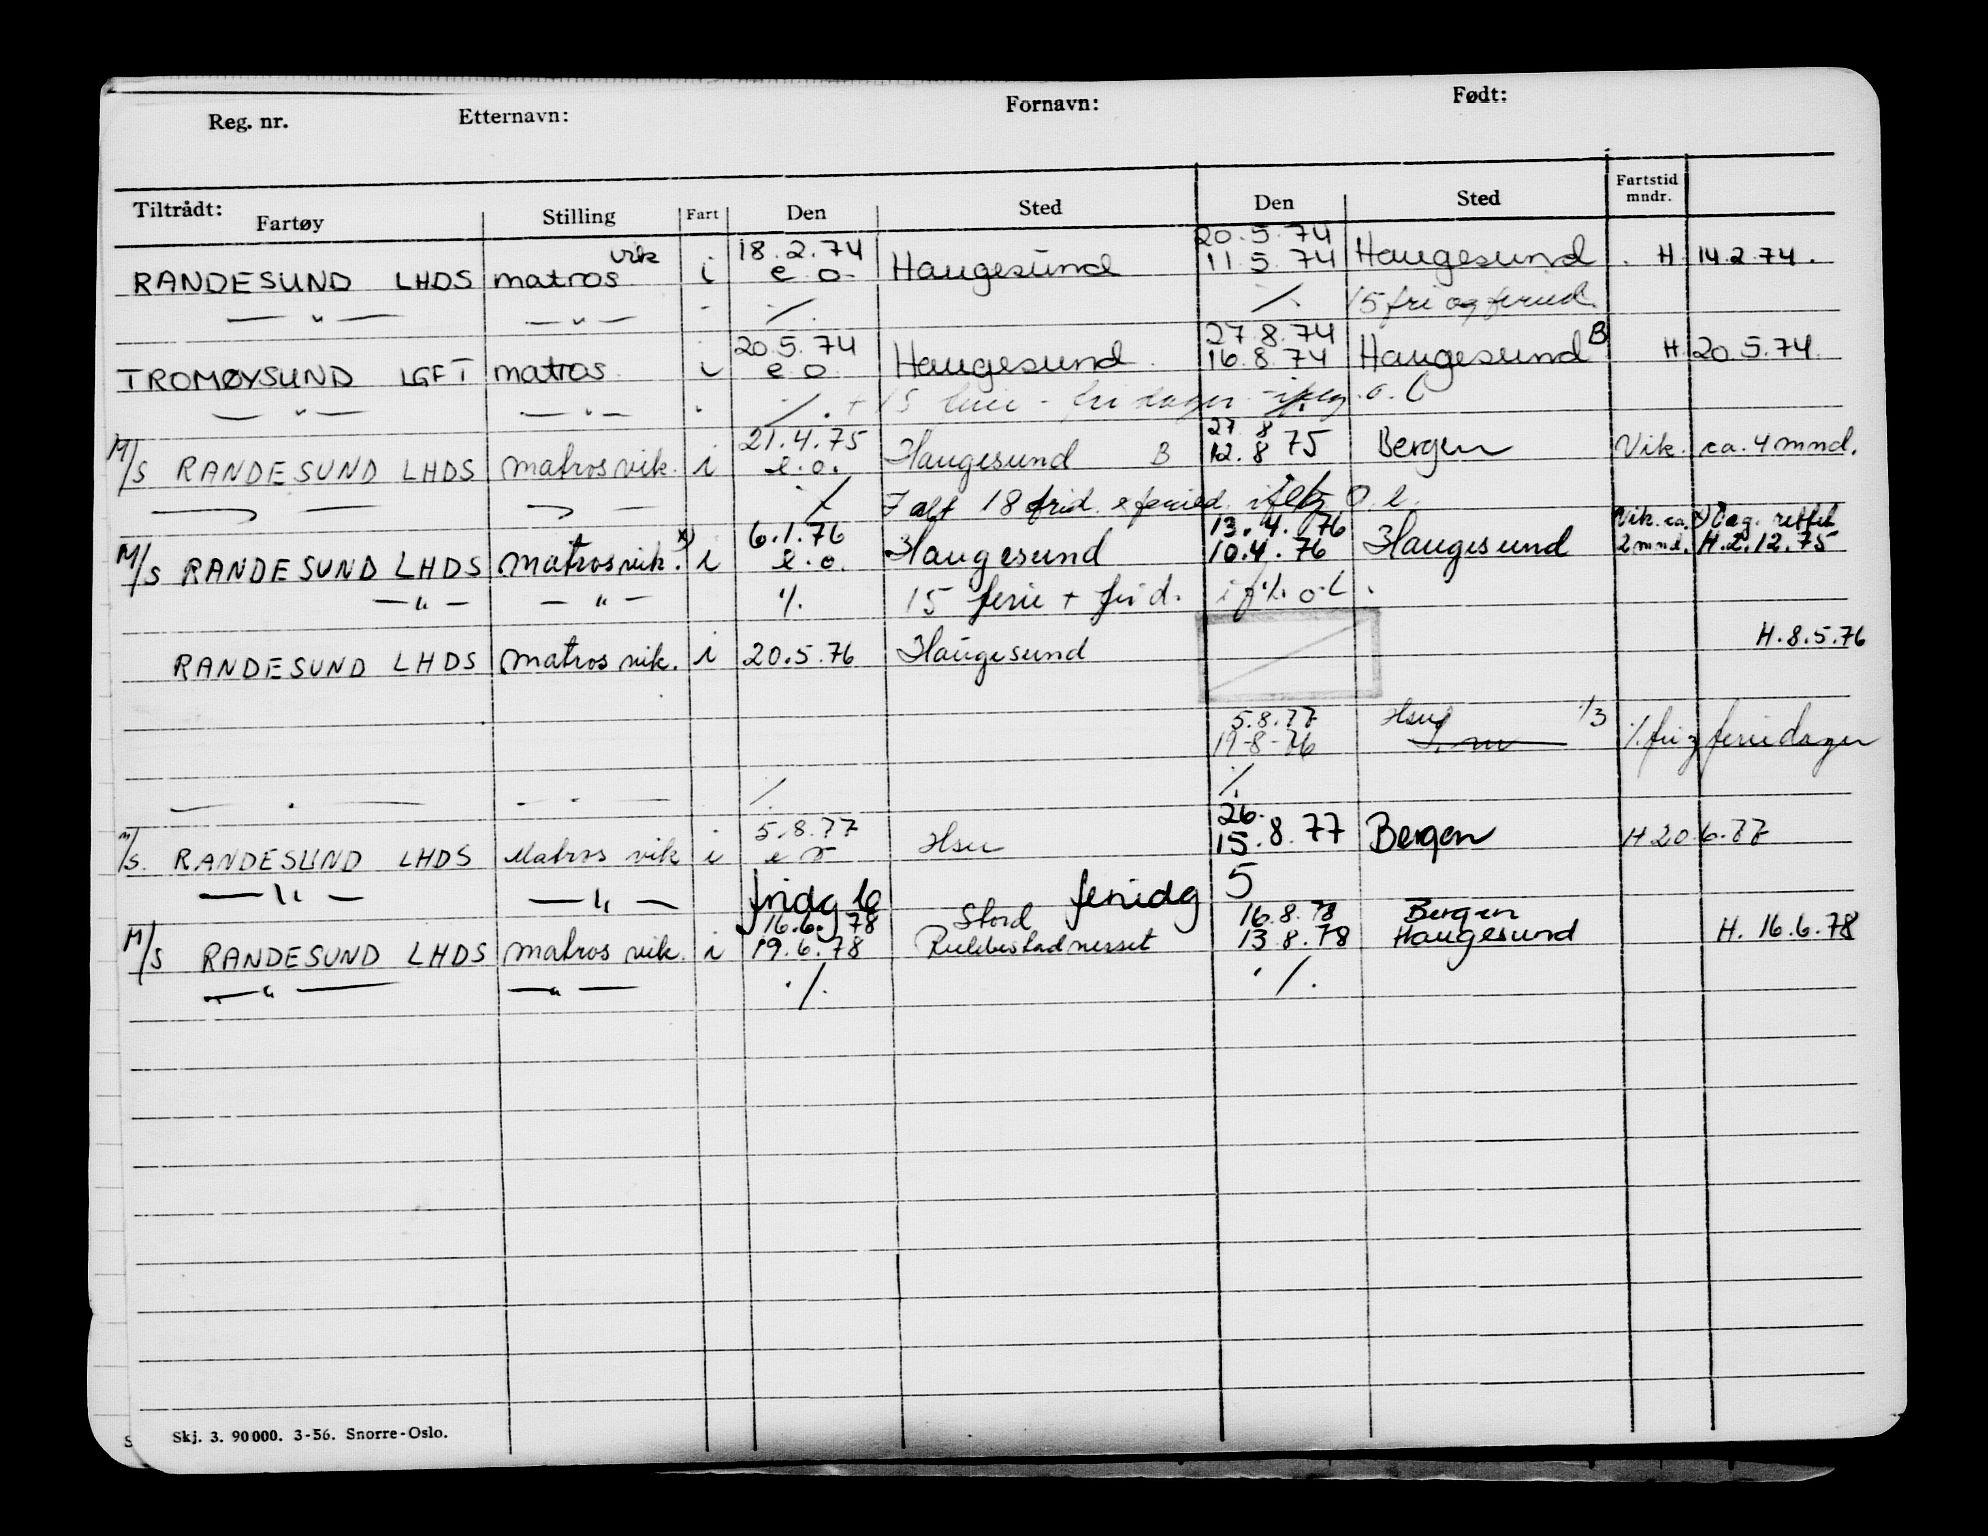 Reg. nr. Etternavn: Fornavn: Født:
Tiltrådt: Fartøy Stilling Fart Den Sted Den Sted Fartstid mndr.
vik 18.2.74 20.5.74
RANDESUND LHDS matros i e.o. Haugesund 11.5.74 Haugesund H. 14.2.74.
— " — — " — - ⁒ ⁒ 15 fri og feried.
20.5.74 27.8.74 B
TROMØYSUND LGFT matros i e.o. Haugesund 16.8.74 Haugesund H. 20.5.74.
— " — — " — ⁒ . + 15 ferie - fri dager o.l
21.4.75 27 8
M/S RANDESUND LHDS matros vik. i e.o. Haugesund B 12.8 75 Bergen Vik. ca. 4 mnd.
⁒ I alt 18 frid. & feried. o.l.
x) 6.1.76 13.4.76 Vik. ca. x) Dag. rettet
M/S RANDESUND LHDS matros vik. i e.o. Haugesund 10.4.76 Haugesund 2 mnd. H. 2.12.75
— " — — " — ⁒ 15 ferie + frid. i f ⁒ o.l.
H. 8.5.76
RANDESUND LHDS matros vik. i 20.5.76 Haugesund
5.8.77 Hsu 1/3
19-8-76 ⁒ fri og feriedager
— " — — " — ⁒ ⁒
5.8.77 26.
M/S. RANDESUND LHDS Matros vik i e o Hsu 15.8.77 Bergen H 20.6.77
— " — — " — fridg 16 feriedg 5
16.6.78 Stord 16.8.78 Bergen
M/S RANDESUND LHDS matros vik. i 19.6.78 13.8.78 Haugesund H. 16.6.78
— " — — " — ⁒ ⁒
Skj. 3. 90000. 3-56. Snorre-Oslo.